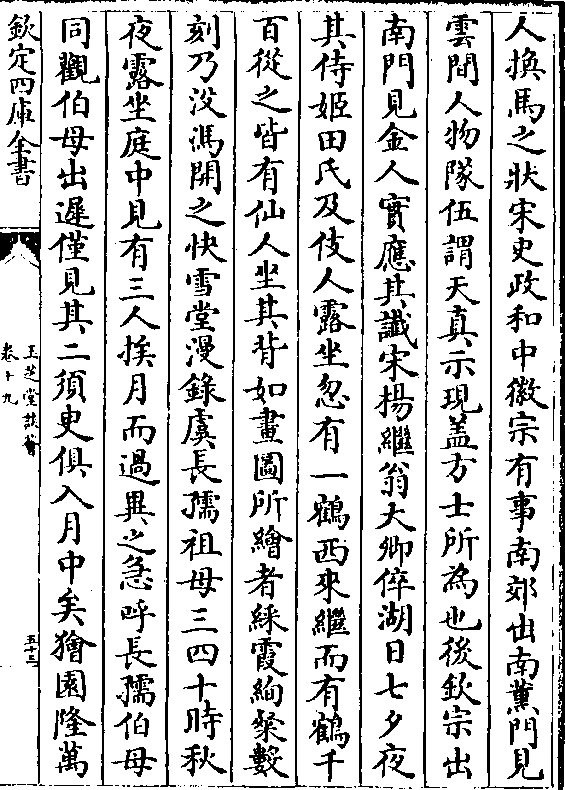 人換馬之狀宋史政和中徽宗有事南郊出南薫門見
雲間人物隊伍謂天真示現盖方士所為也後欽宗出
南門見金人實應其讖宋楊繼翁大卿倅湖日七夕夜
其侍姬田氏及伎人露坐忽有一鶴西來繼而有鶴千
百從之皆有仙人坐其背如畫圖所繪者綵霞絢粲數
刻乃没馮開之快雪堂漫錄虞長孺祖母三四十時秋
夜露坐庭中見有三人挨月而過異之急呼長孺伯母
同觀伯母出遲僅見其二須臾俱入月中矣獪園隆萬
欽定四庫全書
玉芝堂談薈
卷十九
五十三